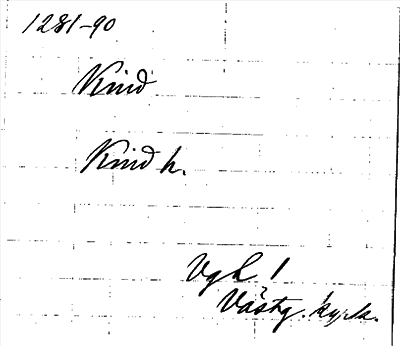 1281-90
Kind
Kind h.
VgL 1
Västg. kyrk.